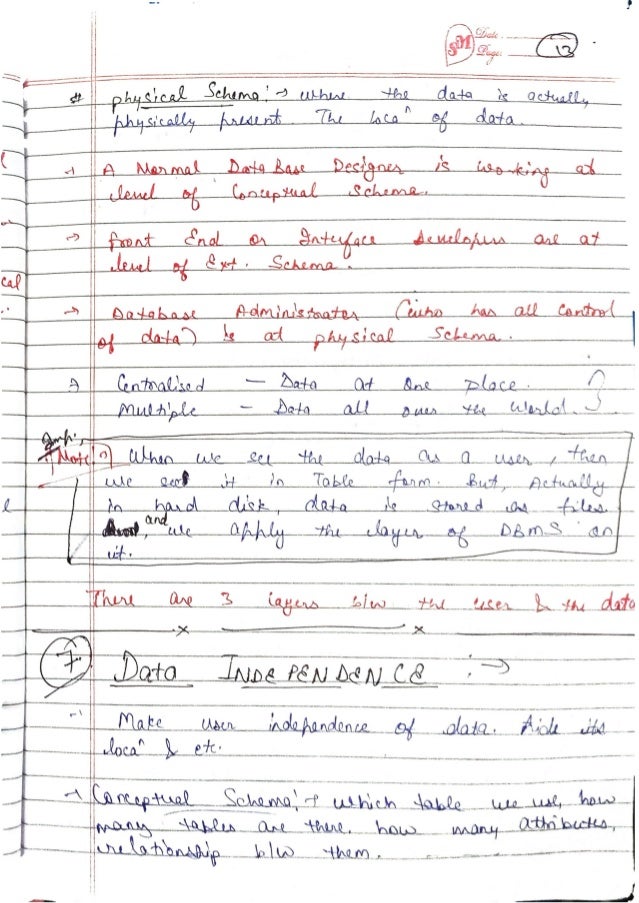 SM Date
Page: 13
# physical Schema: → where the data is actually
physically present. The locaⁿ of data.
→ A Normal Data Base Designer is working at
level of Conceptual Schema.
→ front End or Interface developers are at
level of Ext. Schema.
cal
→ Database Administrater (who has all control
of data) is at physical Schema.
→ Centralised - Data at One place.
Multiple - Data all over the World.
Imp.
Note → When we see the data as a user, then
we it in Table form. But, Actually
in hard disk, data is stored as files
and we apply the layer of DBMS on
it.
There are 3 layers b/w the user & the data
x x
7. Data INDEPENDENCE : →
→ Make user independence of data. Hide its
locaⁿ & etc.
→ Conceptual Schema: → which table we use, how
many tables are there, how many attributes,
relationship b/w them.